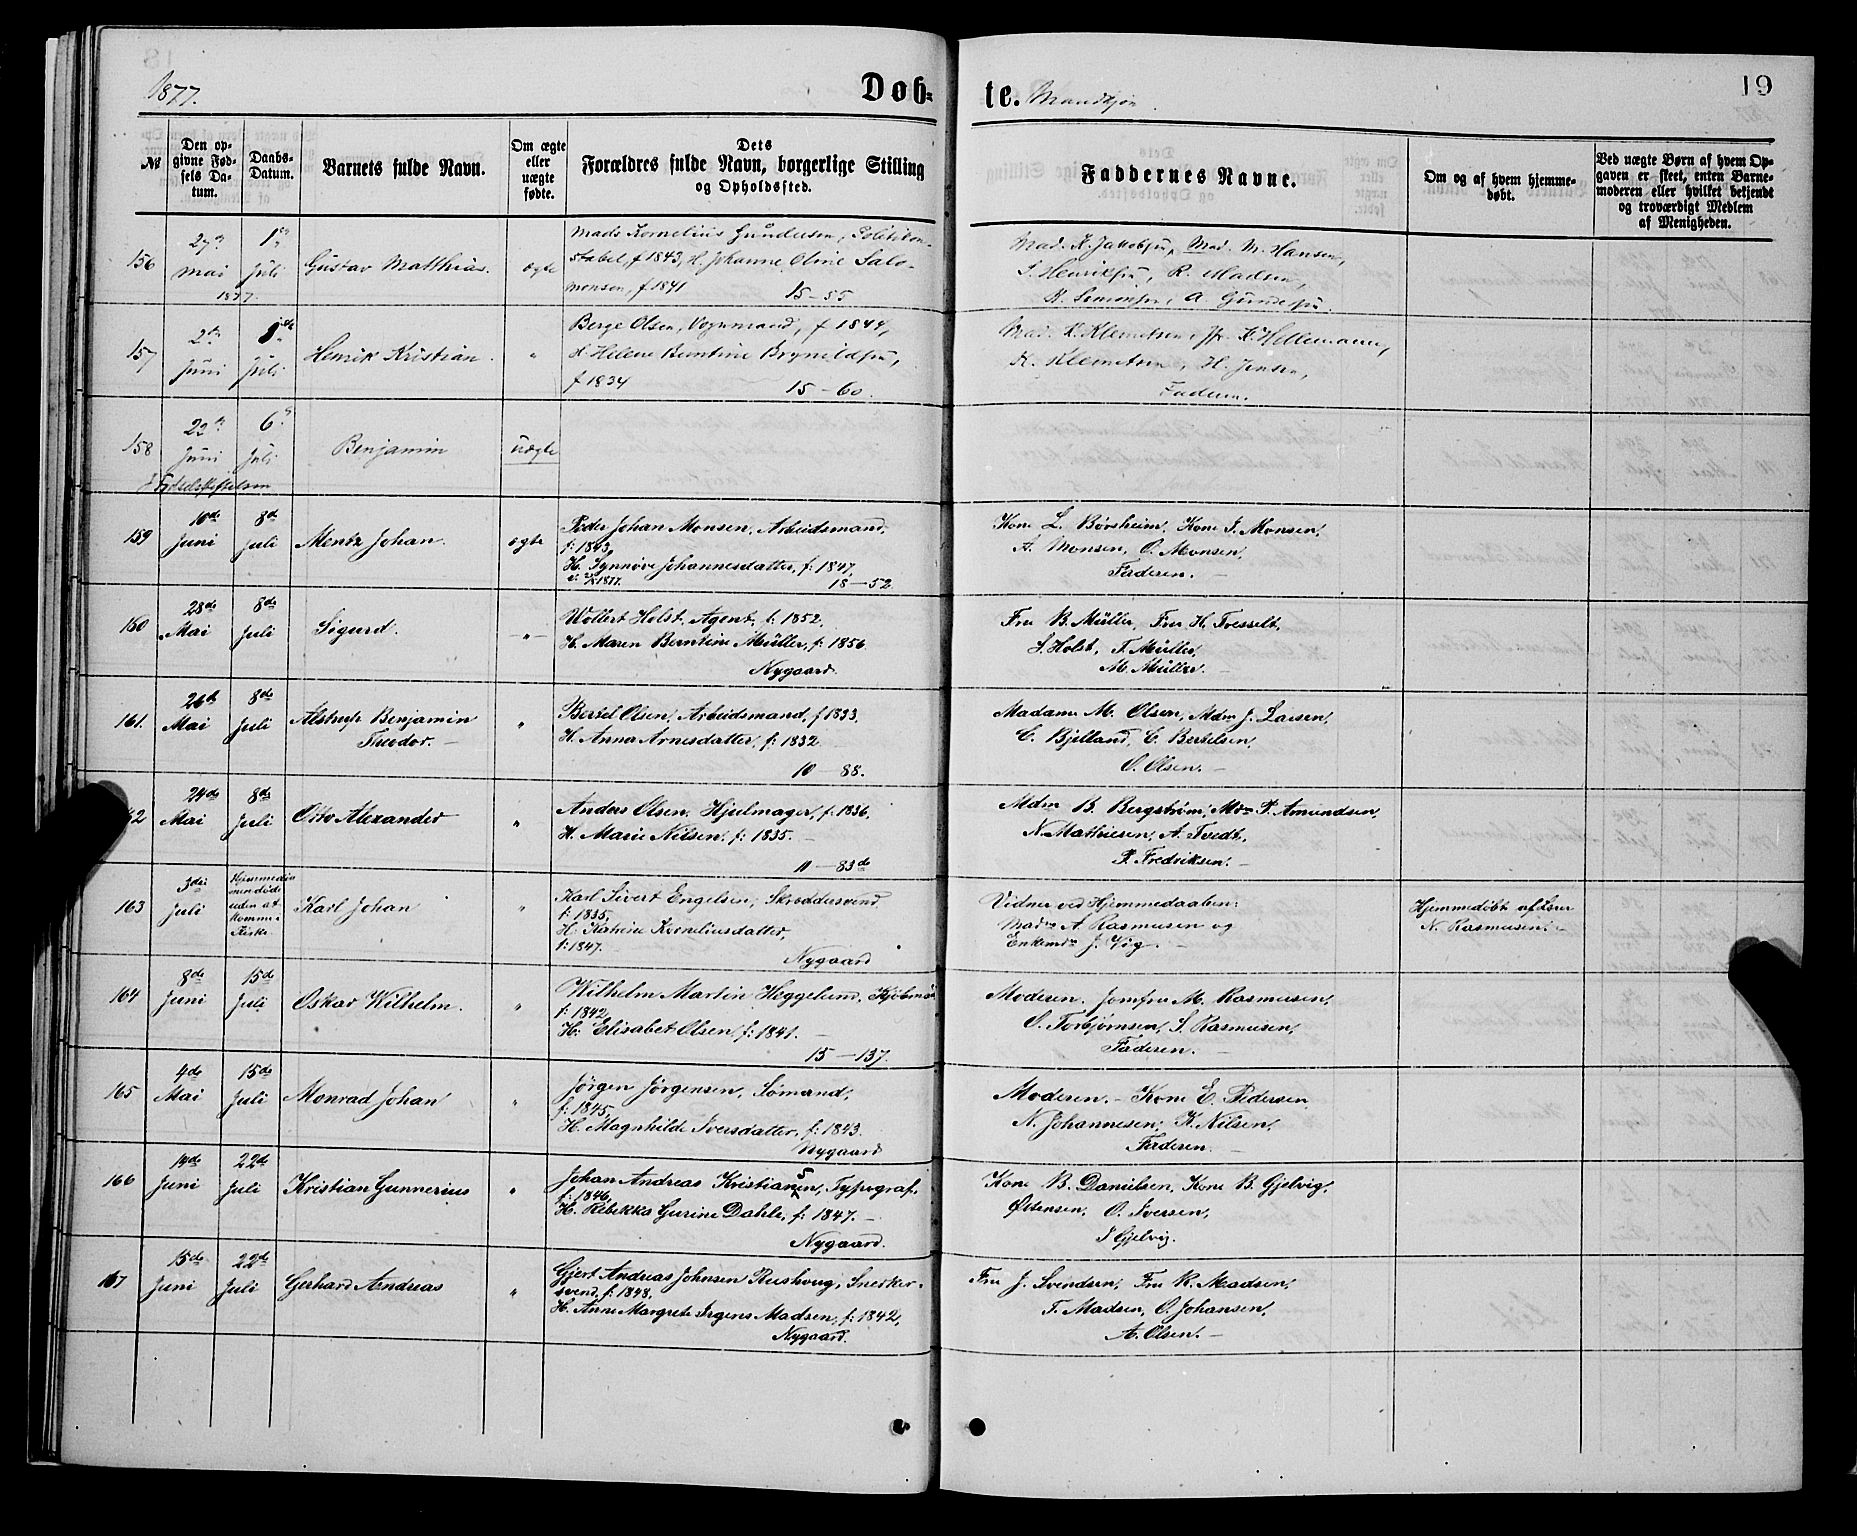 1877.
Døb-
te. Mandkjøn
19
№
Den op-
givne Fød-
sels Da-
tum.
Daabs-
Datum.
Barnets fulde Navn.
Om ægte
eller
uægte
fødte.
Dets
Forældres fulde Navn, borgerlige Stilling
og Opholdssted.
Faddernes Navne.
Om og af hvem hjemme-
døbt.
Ved uægte Børn af hvem Op-
gaven er skeet, enten Barne-
moderen eller hvilket bekjendt
og troværdigt Medlem
af Menigheden.
156
27de
Mai
1877.
1ste
Juli
Gustav Matthias.
ægte
Mads Kornelius Gundersen, Politikon-
stabel, f 1843, H. Johanne Oline Salo-
monsen, f 1841
15-55
Mad. K. Jakobsen, Mad. M. Hansen,
S. Henriksen, R. Madsen,
R. Simonsen, A. Gundersen.
157
2den
Juni
1ste
Juli
Henrik Kristian.
"
Berge Olsen, Vognmand, f 1844,
H. Helene Berntine Bryneldsen,
f 1834
15-60.
Mad. K. Klemetsen, K. Hellemann,
K. Klemetsen, H. Jensen,
Faderen.
158
22de
Juni
6te
Juli
Benjamin
uægte
Fødselsstiftelsen
159
10de
Juni
8de
Juli
Mentz Johan.
ægte
Peder Johan Monsen, Arbeidsmand,
f: 1843,
H. Synnøve Johannesdatter, f: 1847,
1877.
18-52
Kone L. Børsheim, Kone I. Monsen,
A. Monsen, O. Monsen,
Faderen. -
160
28de
Mai
8de
Juli
Sigurd.
"
Wollert Holst, Agent, f: 1852,
H. Maren Berntine Müller, f: 1856.
Nygaard.
Fru B. Müller, Fru H. Tresselt,
S. Holst, F. Müller,
M. Müller. -
161.
26de
Mai
8de
Juli
Alstrup Benjamin
Theodor. -
"
Bertel Olsen, Arbeidsmand, f 1833.
H. Anna Arnesdatter, f: 1832.
10-88.
Madame M. Olsen, Mdm J. Larsen,
C. Bjelland, C. Bertelsen,
O. Olsen. -
62
24de
Mai
8de
Juli
Otto Alexander
"
Anders Olsen, Hjulmager, f: 1836,
H. Marie Nilsen, f: 1835. -
11-83de
Mdm B. Bergstrøm, Mdm P. Amundsen,
N. Mathiesen, A. Tvedt,
P. Fredriksen. -
163
3die
Juli
Hjemmedøbt
men døde
uden at
komme i
Kirke
Karl Johan
"
Karl Sivert Engelsen, Skræddersvend
f: 1835,
H. Katrine Korneliusdatter,
f: 1847. -
Nygaard
Vidner ved Hjemmedaaben:
Madm A. Rasmusen og
Enkemdm J. Vig. -
Hjemmedøbt af Lærer
N. Rasmusen. -
164
8de
Juni
15de
Juli
Oskar Wilhelm.
"
Wilhelm Martin Heggelund, Kjøbm
f: 1842,
H: Elisabet Olsen, f: 1841. -
15-137.
Moderen. Jomfru M. Rasmusen,
O. Torbjørnsen, S. Rasmusen,
Faderen. -
165
4de
Mai
15de
Juli
Monrad Johan
"
Jørgen Jørgensen, Sømand,
f: 1845,
H. Magnhilde Iversdatter, f: 1843.
Nygaard
Moderen. - Kone E. Pedersen,
N. Johannesen, K. Nilsen,
Faderen. -
166
14de
Juni
22de
Juli
Kristian Gunnerius
"
Johan Andreas Kristiansen, Typograf,
f: 1846,
H. Rebekka Gurine Dahle, f: 1847. -
Nygaard.
Kone B. Danielsen, Kone B. Gjelvig,
Østensen, O. Iversen,
I Gjelvig.
167
15de
Juni
22de
Juli
Gerhard Andreas
"
Gjert Andreas Johnsen Rushoug, Snerker-
svend, f: 1848,
H. Anne Margrete Irgens Madsen, f: 1842,
Nygaard.
Fru J. Svendsen, Fru K. Madsen,
T. Madsen, O. Johansen,
A. Olsen. -